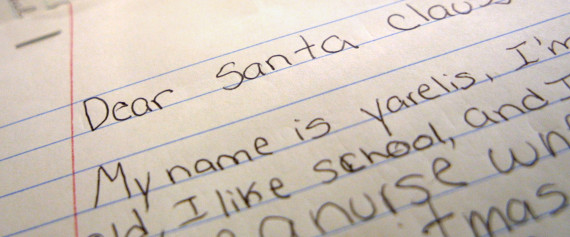 Dear Santa Claus
My name is yarelis, I'm
old, I like school, and I
a nurse wh
tmas